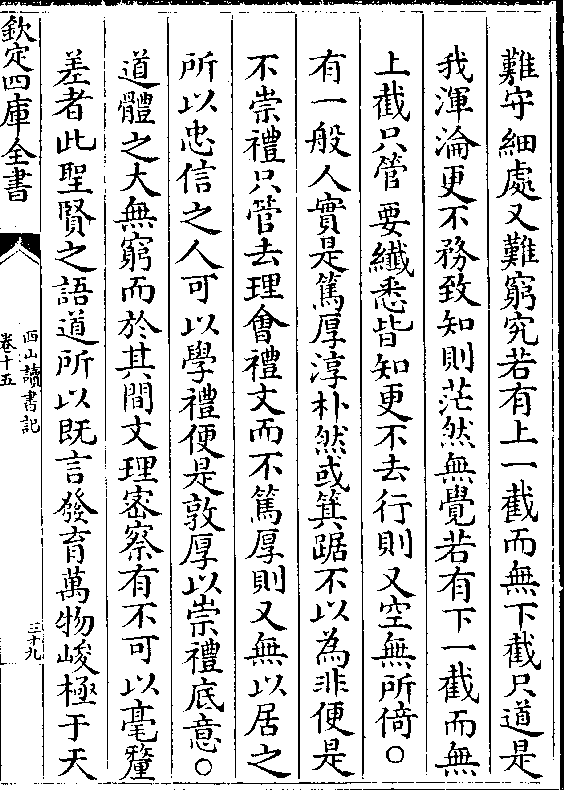 難守細處又難窮究若有上一截而無下截只道是
我渾淪更不務致知則茫然無覺若有下一截而無
上截只管要纎悉皆知更不去行則又空無所倚○
有一般人實是篤厚淳朴然或箕踞不以為非便是
不崇禮只管去理會禮文而不篤厚則又無以居之
所以忠信之人可以學禮便是敦厚以崇禮底意○
道體之大無窮而於其間文理密察有不可以毫釐
差者此聖賢之語道所以既言發育萬物峻極于天
欽定四庫全書
西山讀書記
卷十五
三十九